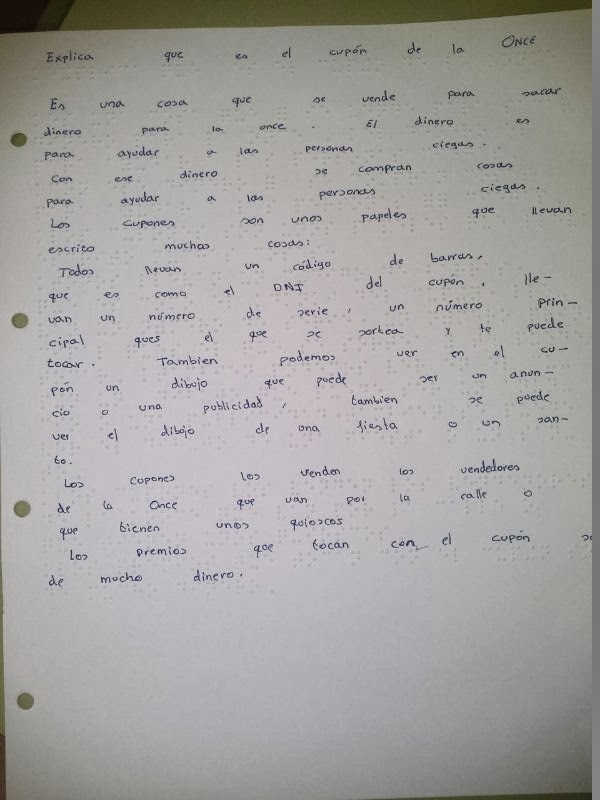 Explica que es el cupón de la ONCE
Es una cosa que se vende para sacar
dinero para la once. El dinero es
para ayudar a las personas ciegas.
Con ese dinero se compran cosas
para ayudar a las personas ciegas.
Los cupones son unos papeles que llevan
escrito muchas cosas:
Todos llevan un código de barras,
que es como el DNI del cupón, lle-
van un número de serie, un número prin-
cipal ques el que se sortea y te puede
tocar. Tambien podemos ver en el cu-
pón un dibujo que puede ser un anun-
cio o una publicidad, tambien se puede
ver el dibujo de una fiesta o un san-
to.
Los cupones los venden los vendedores
de la Once que van por la calle o
que tienen unos quioscos
Los premios que tocan con el cupón
de mucho dinero.